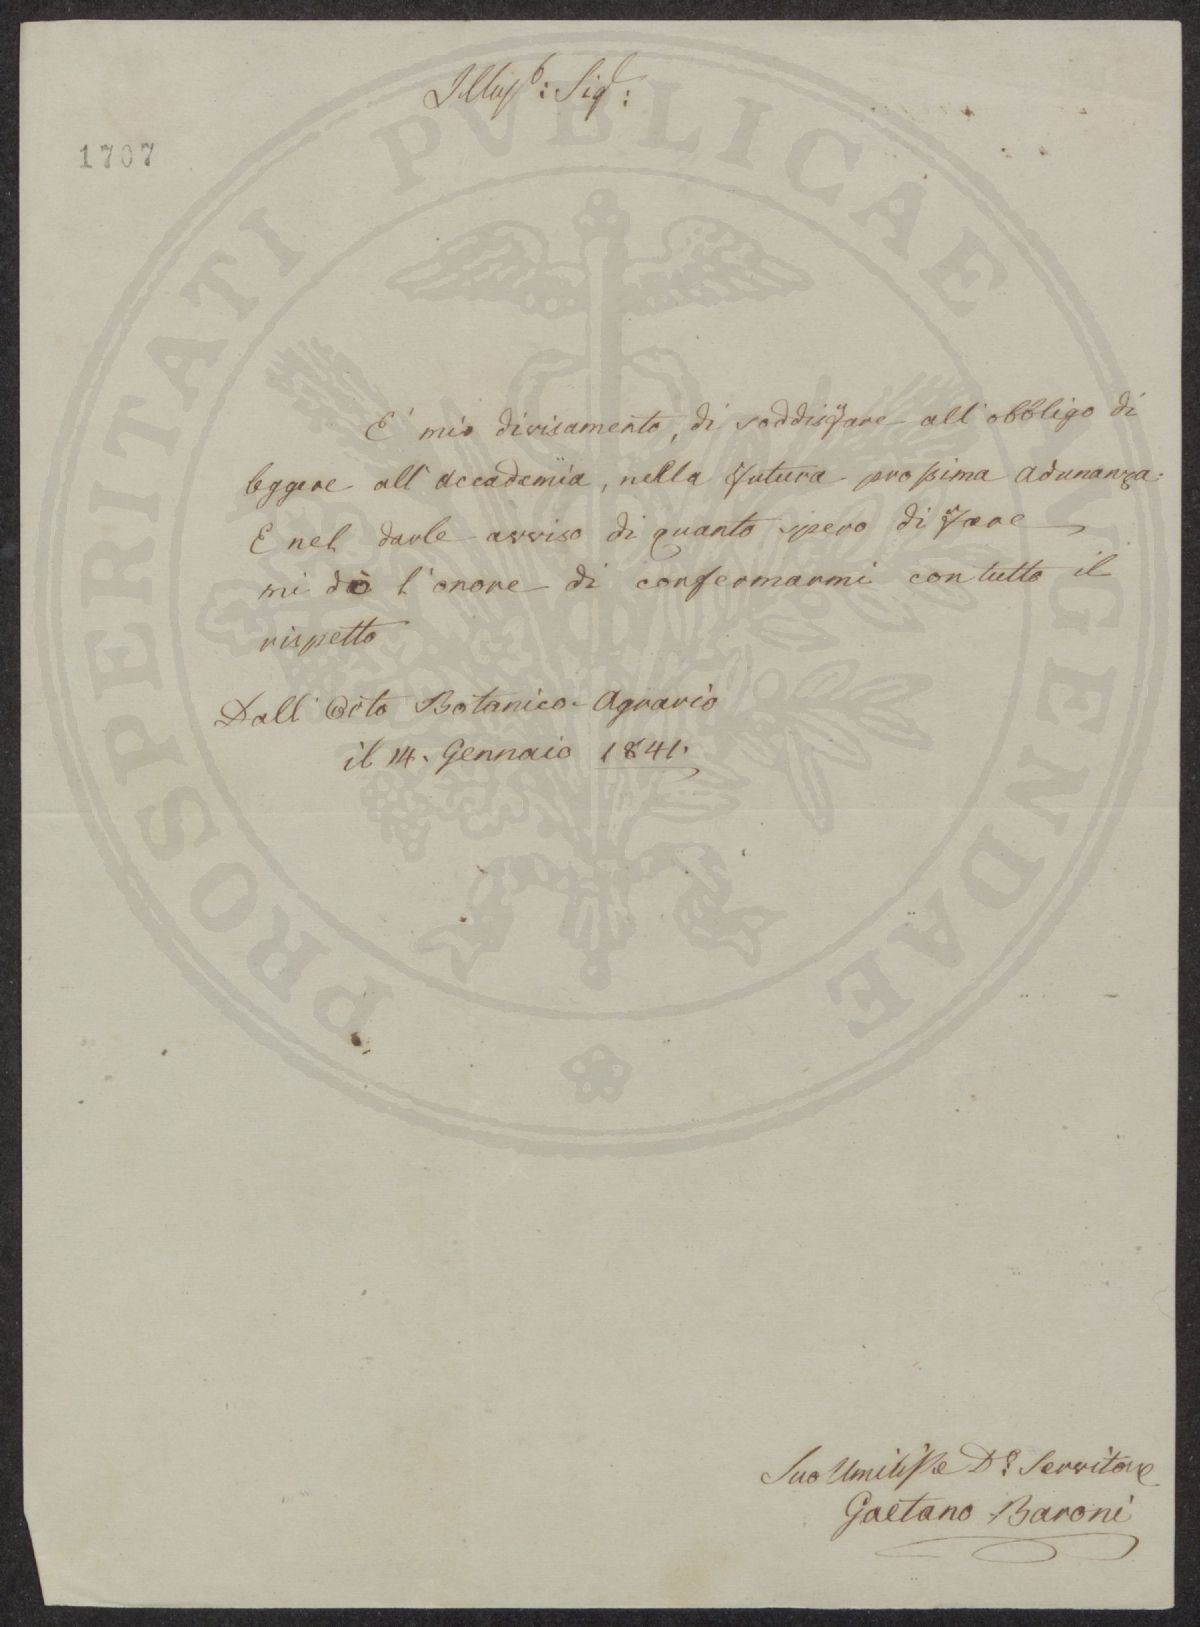 Illuss.o: Sig.r:
1707
E' mio divisamento, di soddisfare all'obbligo di
leggere all'accademia, nella futura prossima adunanza:
E nel darle avviso di quanto spero di fare
mi dò l'onore di confermarmi con tutto il
rispetto
Dall'Orto Botanico-Agrario
il 14. Gennaio 1841.
Suo Umiliss.e D.o Servitore
Gaetano Baroni
PROSPERITATI PVBLICAE AVGENDAE